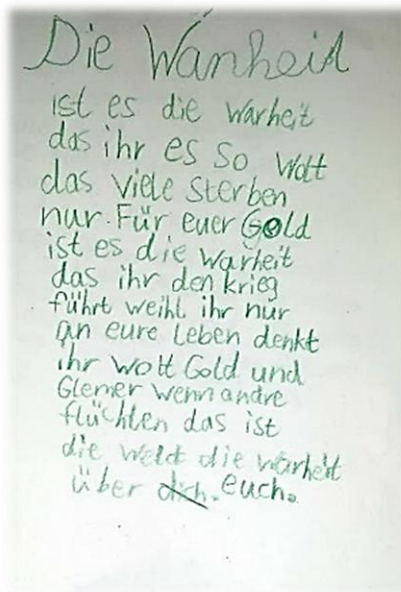 Die Wahrheit
ist es die warheit
das ihr es so wolt
das viele sterben
nur. Für euer Gold
ist es die warheit
das ihr den krieg
führt weihl ihr nur
an eure leben denkt
ihr wolt Gold und
Glemer wenn andre
flüchten das ist
die welt die warheit
über dich. euch.